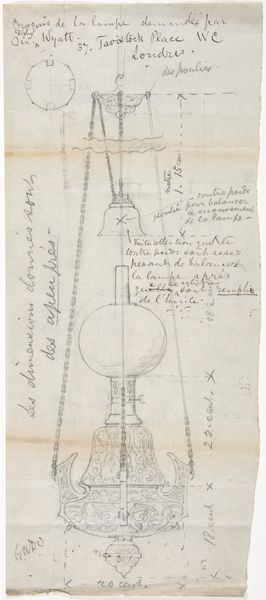 Croquis de la lampe demandée par
Wyatt. 37. Tavistock Place WC
Londres.
des poulies.
1.15 cm
contre poids
pour balancer
le mouvement
de la lampe -
Faites attention que le
contre poids soit assez
pesant de balancer
la lampe après
qu'elle soit remplie
de l'huile.
Les dimensions données sont
des à peu près -
23. cent.
18 cent
20 cent.